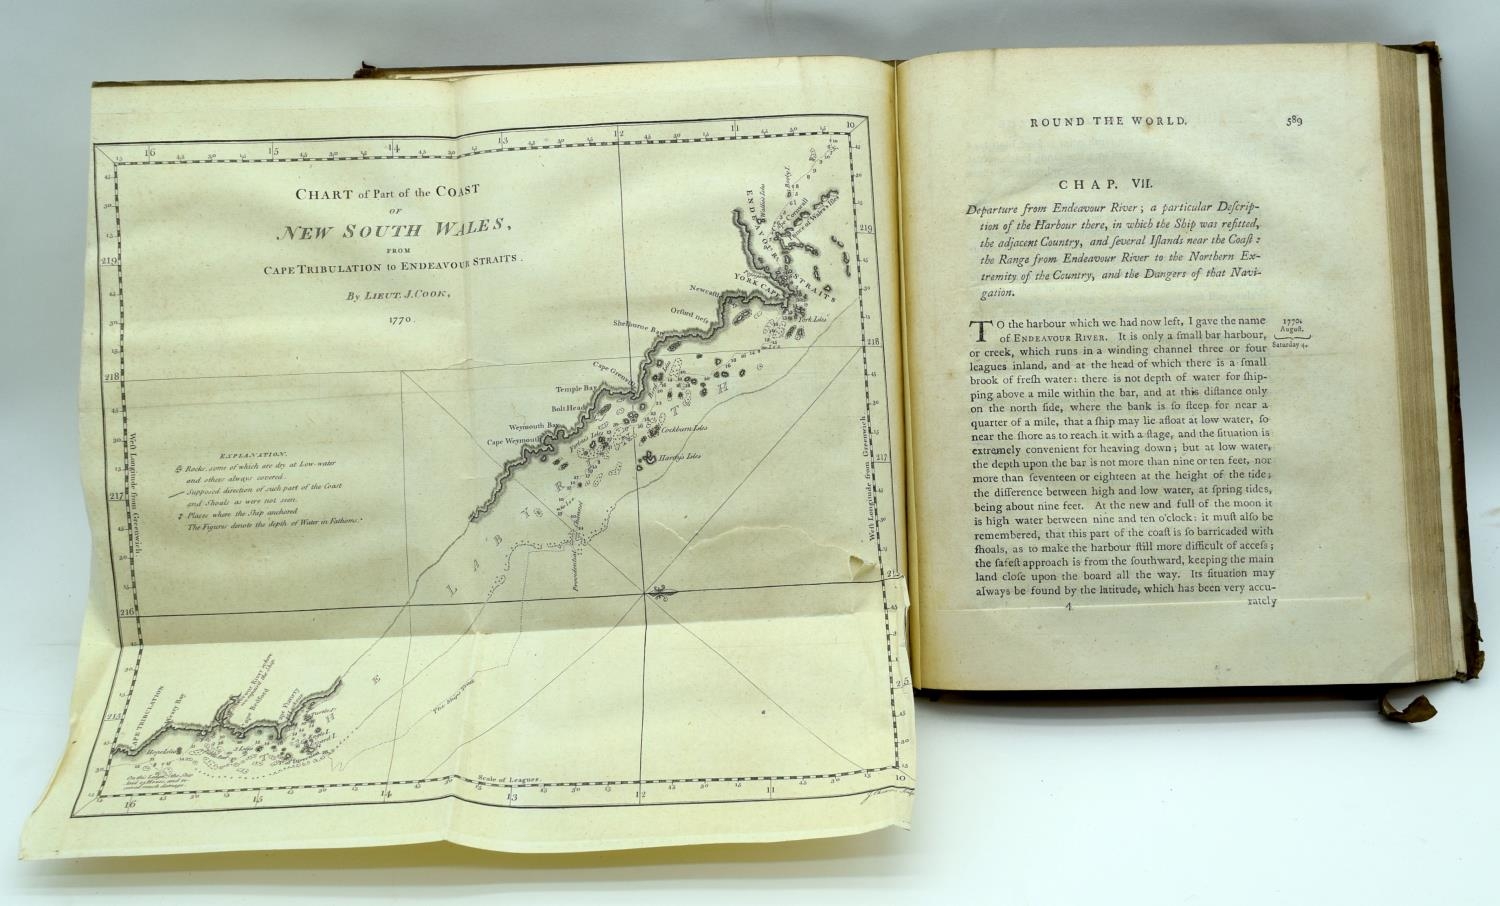 CHART of Part of the COAST
OF
NEW SOUTH WALES,
FROM
CAPE TRIBULATION to ENDEAVOUR STRAITS.
By LIEUT. J. COOK,
1770.
EXPLANATION.
Rocks, some of which are dry at Low-water
and others always covered.
Supposed direction of such part of the Coast
and Shoals as were not seen.
Places where the Ship anchored
The Figures denote the depth of Water in Fathoms.
West Longitude from Greenwich
West Longitude from Greenwich
ENDEAVOUR STRAITS
YORK CAPE
York Isles
Newcastle
Orford ness
Shelburne Bay
Cape Grenvil
Temple Bay
Bolt Head
Weymouth Bay
Cape Weymouth
Forbes's Isles
Cockburn Isles
Hardys Isles
Providential Channel
LABYRINTH
The Ships Track
CAPE TRIBULATION
Cape Bedford
Scale of Leagues.
16
15
14
13
12
11
10
219
218
217
216
215
219
218
217
16
15
14
13
12
11
10
ROUND THE WORLD. 589
CHAP. VII.
Departure from Endeavour River; a particular Deſcrip-
tion of the Harbour there, in which the Ship was refitted,
the adjacent Country, and ſeveral Iſlands near the Coaſt:
the Range from Endeavour River to the Northern Ex-
tremity of the Country, and the Dangers of that Navi-
gation.
TO the harbour which we had now left, I gave the name
of ENDEAVOUR RIVER. It is only a ſmall bar harbour,
or creek, which runs in a winding channel three or four
leagues inland, and at the head of which there is a ſmall
brook of freſh water: there is not depth of water for ſhip-
ping above a mile within the bar, and at this diſtance only
on the north ſide, where the bank is ſo ſteep for near a
quarter of a mile, that a ſhip may lie afloat at low water, ſo
near the ſhore as to reach it with a ſtage, and the ſituation is
extremely convenient for heaving down; but at low water,
the depth upon the bar is not more than nine or ten feet, nor
more than ſeventeen or eighteen at the height of the tide;
the difference between high and low water, at ſpring tides,
being about nine feet. At the new and full of the moon it
is high water between nine and ten o'clock: it muſt alſo be
remembered, that this part of the coaſt is ſo barricaded with
ſhoals, as to make the harbour ſtill more difficult of acceſs;
the ſafeſt approach is from the ſouthward, keeping the main
land cloſe upon the board all the way. Its ſituation may
always be found by the latitude, which has been very accu-
4 rately
1770.
Auguſt.
Saturday 4.